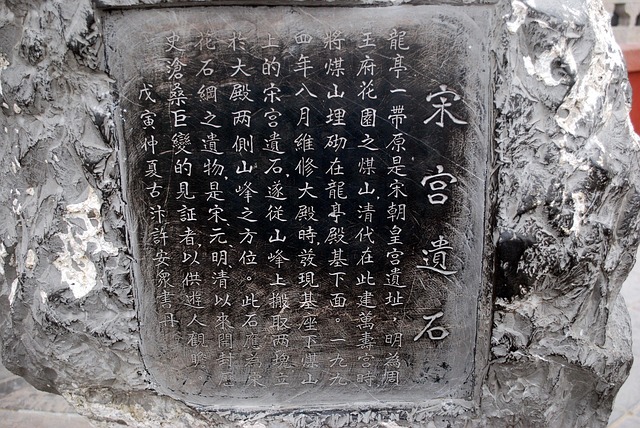 宋宮遺石
龍亭一帶原是宋朝皇宮遺址，明為周
王府花園之煤山，清代在此建萬壽宮時
將煤山埋砌在龍亭殿基下面。一九九
四年八月維修大殿時，發現基座下煤山
上的宋宮遺石，遂從山峰上搬取两塊立
於大殿两側山峰之方位。此石應為宋
花石綱之遺物，是宋、元、明、清以來開封
史滄桑巨變的見証者，以供遊人觀瞻
戊寅仲夏古汴許安眾書丹